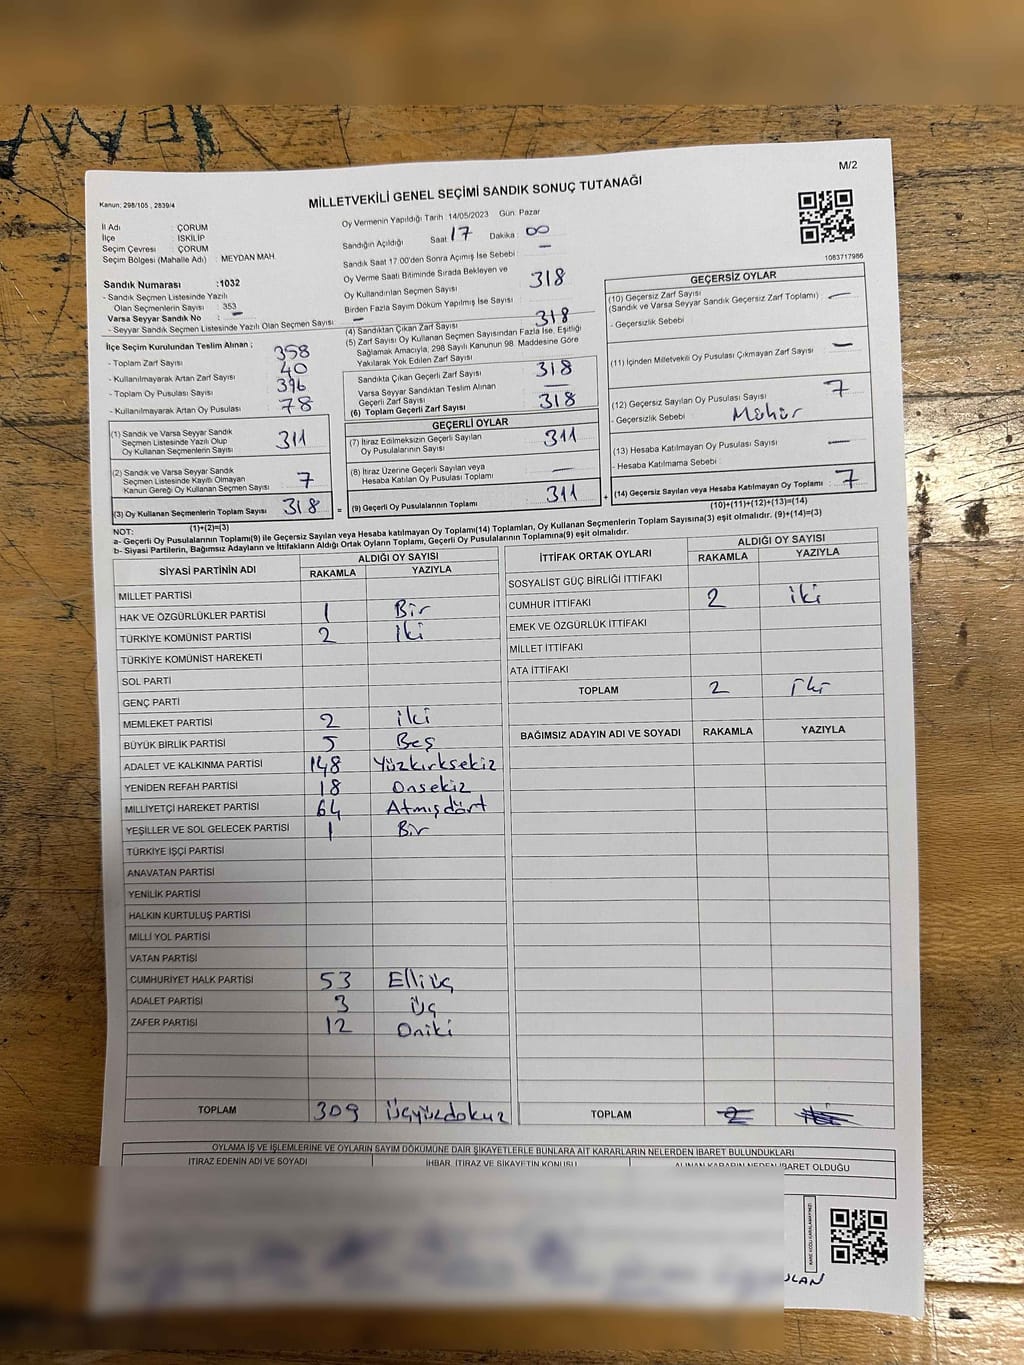 M/2
Kanun: 298/105 , 2839/4
MİLLETVEKİLİ GENEL SEÇİMİ SANDIK SONUÇ TUTANAĞI
İl Adı : ÇORUM
İlçe : İSKİLİP
Seçim Çevresi : ÇORUM
Seçim Bölgesi (Mahalle Adı) : MEYDAN MAH.
Oy Vermenin Yapıldığı Tarih : 14/05/2023 Gün: Pazar
Sandığın Açıldığı Saat : 17 Dakika : 00
Sandık Saat 17:00'den Sonra Açımış İse Sebebi : —
Oy Verme Saati Bitiminde Sırada Bekleyen ve
Oy Kullandırılan Seçmen Sayısı 318
Birden Fazla Sayım Döküm Yapılmış İse Sayısı
1083717986
Sandık Numarası :1032
- Sandık Seçmen Listesinde Yazılı
Olan Seçmenlerin Sayısı : 353
Varsa Seyyar Sandık No : —
- Seyyar Sandık Seçmen Listesinde Yazılı Olan Seçmen Sayısı : —
İlçe Seçim Kurulundan Teslim Alınan ;
- Toplam Zarf Sayısı 358
- Kullanılmayarak Artan Zarf Sayısı 40
- Toplam Oy Pusulası Sayısı 396
- Kullanılmayarak Artan Oy Pusulası 78
(1) Sandık ve Varsa Seyyar Sandık
Seçmen Listesinde Yazılı Olup
Oy Kullanan Seçmenlerin Sayısı 311
(2) Sandık ve Varsa Seyyar Sandık
Seçmen Listesinde Kayıtlı Olmayan
Kanun Gereği Oy Kullanan Seçmen Sayısı 7
(3) Oy Kullanan Seçmenlerin Toplam Sayısı 318
(1)+(2)=(3)
(4) Sandıktan Çıkan Zarf Sayısı 318
(5) Zarf Sayısı Oy Kullanan Seçmen Sayısından Fazla İse, Eşitliği
Sağlamak Amacıyla, 298 Sayılı Kanunun 98. Maddesine Göre
Yakılarak Yok Edilen Zarf Sayısı
Sandıkta Çıkan Geçerli Zarf Sayısı 318
Varsa Seyyar Sandıktan Teslim Alınan
Geçerli Zarf Sayısı —
(6) Toplam Geçerli Zarf Sayısı 318
GEÇERLİ OYLAR
(7) İtiraz Edilmeksizin Geçerli Sayılan
Oy Pusulalarının Sayısı 311
(8) İtiraz Üzerine Geçerli Sayılan veya
Hesaba Katılan Oy Pusulası Toplamı —
= (9) Geçerli Oy Pusulalarının Toplamı 311
GEÇERSİZ OYLAR
(10) Geçersiz Zarf Sayısı —
(Sandık ve Varsa Seyyar Sandık Geçersiz Zarf Toplamı)
- Geçersizlik Sebebi
(11) İçinden Milletvekili Oy Pusulası Çıkmayan Zarf Sayısı —
(12) Geçersiz Sayılan Oy Pusulası Sayısı 7
- Geçersizlik Sebebi Mühür
(13) Hesaba Katılmayan Oy Pusulası Sayısı —
- Hesaba Katılmama Sebebi :
+ (14) Geçersiz Sayılan veya Hesaba Katılmayan Oy Toplamı 7
(10)+(11)+(12)+(13)=(14)
NOT:
a- Geçerli Oy Pusulalarının Toplamı(9) ile Geçersiz Sayılan veya Hesaba katılmayan oy Toplamı(14) Toplamları, Oy Kullanan Seçmenlerin Toplam Sayısına(3) eşit olmalıdır. (9)+(14)=(3)
b- Siyasi Partilerin, Bağımsız Adayların ve İttifakların Aldığı Ortak Oyların Toplamı, Geçerli Oy Pusulalarının Toplamına(9) eşit olmalıdır.
SİYASİ PARTİNİN ADI ALDIĞI OY SAYISI
RAKAMLA YAZIYLA
MİLLET PARTİSİ
HAK VE ÖZGÜRLÜKLER PARTİSİ 1 Bir
TÜRKİYE KOMÜNİST PARTİSİ 2 İki
TÜRKİYE KOMÜNİST HAREKETİ
SOL PARTİ
GENÇ PARTİ
MEMLEKET PARTİSİ 2 iki
BÜYÜK BİRLİK PARTİSİ 5 Beş
ADALET VE KALKINMA PARTİSİ 148 Yüzkırksekiz
YENİDEN REFAH PARTİSİ 18 Onsekiz
MİLLİYETÇİ HAREKET PARTİSİ 64 Atmışdört
YEŞİLLER VE SOL GELECEK PARTİSİ 1 Bir
TÜRKİYE İŞÇİ PARTİSİ
ANAVATAN PARTİSİ
YENİLİK PARTİSİ
HALKIN KURTULUŞ PARTİSİ
MİLLİ YOL PARTİSİ
VATAN PARTİSİ
CUMHURİYET HALK PARTİSİ 53 Elliüç
ADALET PARTİSİ 3 üç
ZAFER PARTİSİ 12 Oniki
TOPLAM 309 Üçyüzdokuz
İTTİFAK ORTAK OYLARI ALDIĞI OY SAYISI
RAKAMLA YAZIYLA
SOSYALİST GÜÇ BİRLİĞİ İTTİFAKI
CUMHUR İTTİFAKI 2 iki
EMEK VE ÖZGÜRLÜK İTTİFAKI
MİLLET İTTİFAKI
ATA İTTİFAKI
TOPLAM 2 iki
BAĞIMSIZ ADAYIN ADI VE SOYADI RAKAMLA YAZIYLA
TOPLAM 2
OYLAMA İŞ VE İŞLEMLERİNE VE OYLARIN SAYIM DÖKÜMÜNE DAİR ŞİKAYETLERLE BUNLARA AİT KARARLARIN NELERDEN İBARET BULUNDUKLARI
İTİRAZ EDENİN ADI VE SOYADI İHBAR, İTİRAZ VE ŞİKAYETİN KONUSU ALINAN KARARIN NEDEN İBARET OLDUĞU